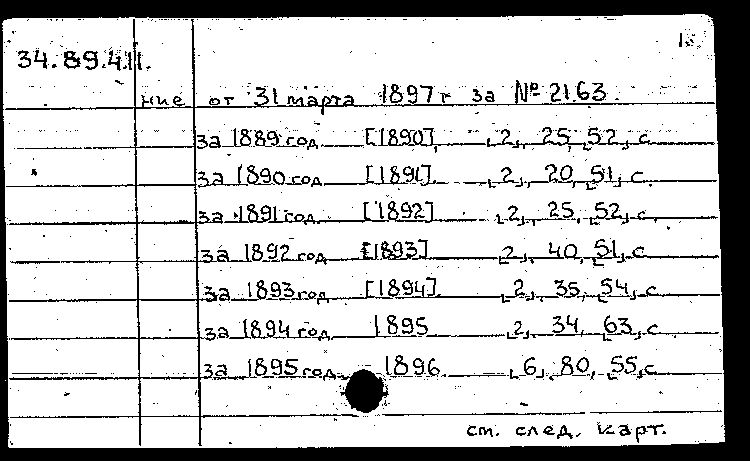 34.89.4.11.
ние от 31 марта 1897 г за № 2163.
за 1889 год [1890], [2], 25, [52] с.
за 1890 год [1891] [2], 20, [51] с.
за 1891 год [1892] [2], 25, [52] с.
за 1892 год [1893] [2], 40, [51] с
за 1893 год [1894] [2], 35, [54] с.
за 1894 год 1895 [2], 34, [63] с
за 1895 год 1896. [6], 80, [55] с
см. след. карт.